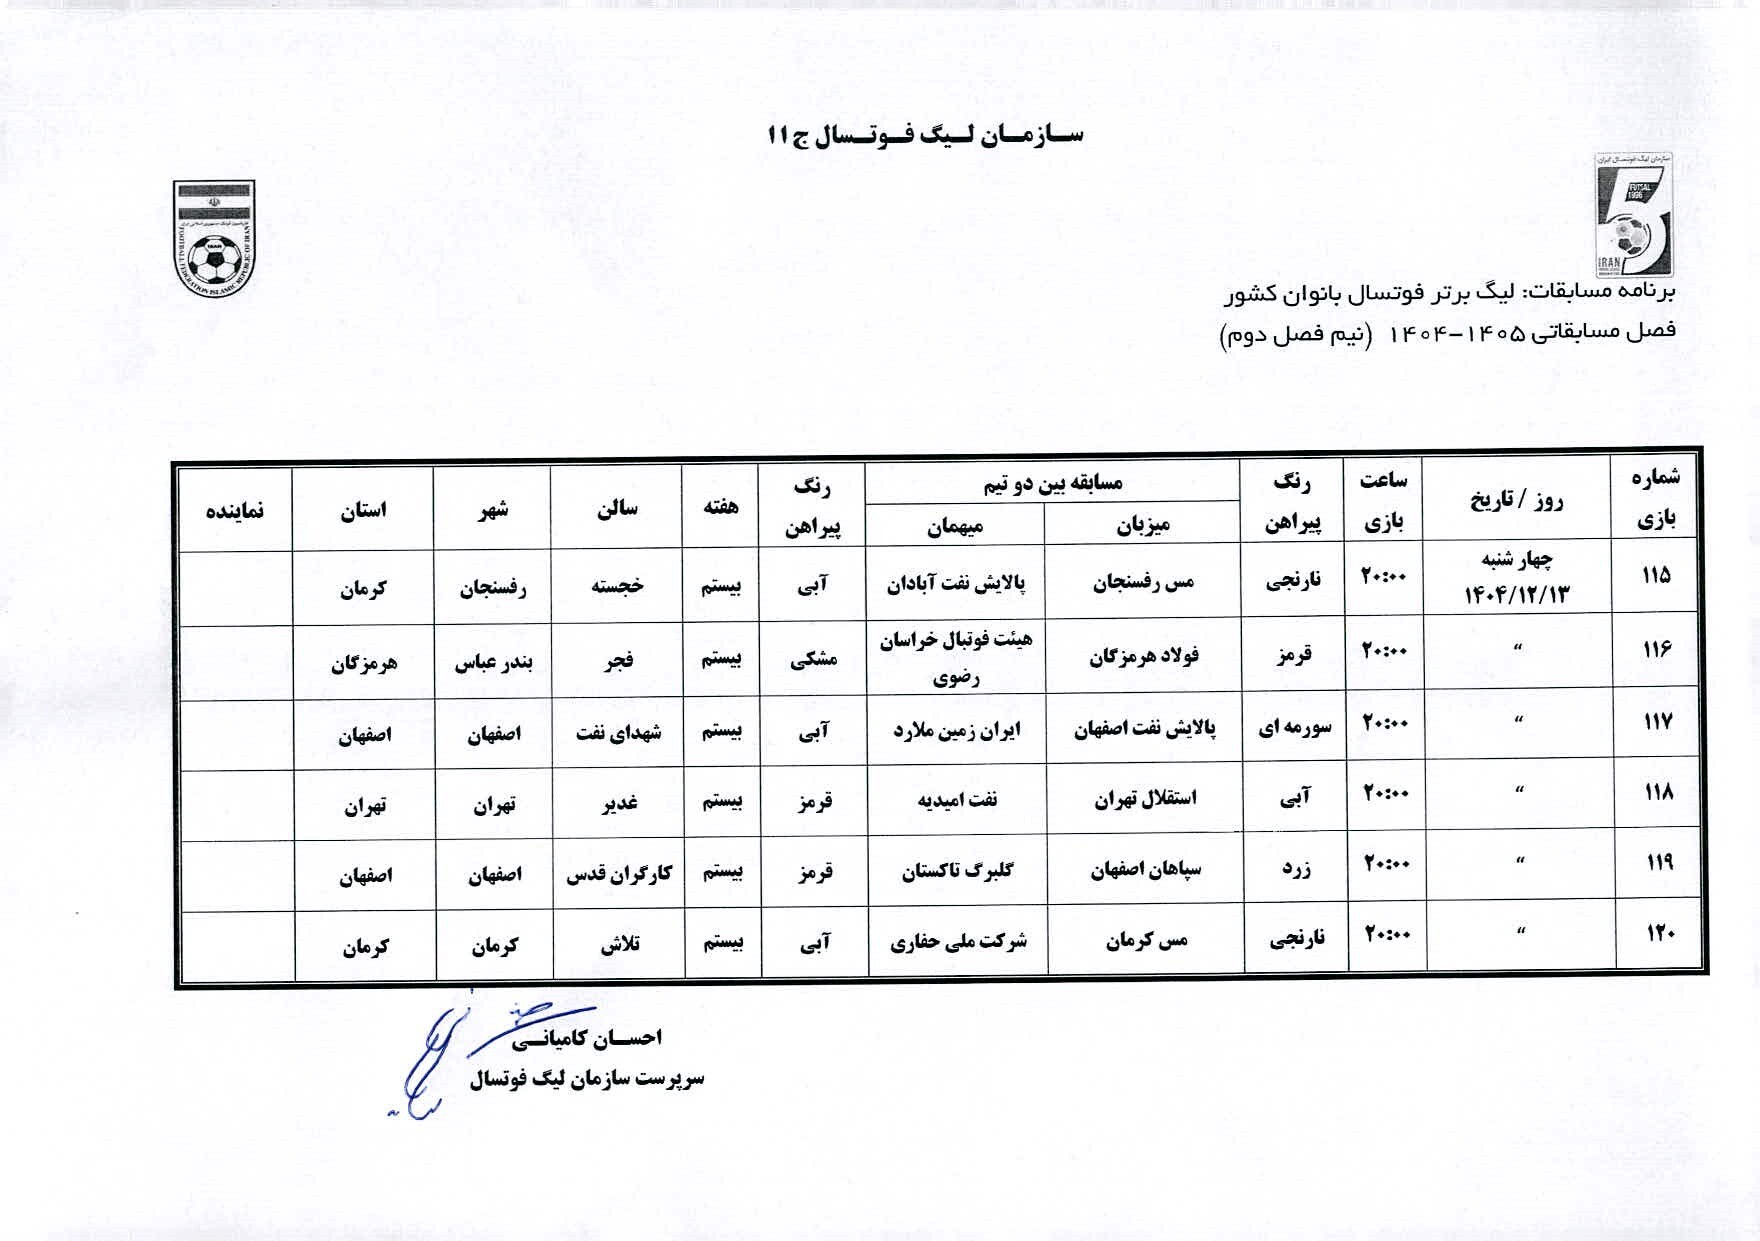 سازمان لیگ فوتسال ج۱۱
سازمان لیگ فوتسال ایران
FUTSAL
1996
IRAN
FOOTBALL FEDERATION ISLAMIC REPUBLIC OF IRAN
IRAN
برنامه مسابقات: لیگ برتر فوتسال بانوان کشور
فصل مسابقاتی ۱۴۰۵-۱۴۰۴ (نیم فصل دوم)
شماره بازی | روز / تاریخ | ساعت بازی | رنگ پیراهن | مسابقه بین دو تیم | رنگ پیراهن | هفته | سالن | شهر | استان | نماینده
میزبان | میهمان
۱۱۵ | چهار شنبه ۱۴۰۴/۱۲/۱۳ | ۲۰:۰۰ | نارنجی | مس رفسنجان | پالایش نفت آبادان | آبی | بیستم | خجسته | رفسنجان | کرمان
۱۱۶ | “ | ۲۰:۰۰ | قرمز | فولاد هرمزگان | هیئت فوتبال خراسان رضوی | مشکی | بیستم | فجر | بندر عباس | هرمزگان
۱۱۷ | “ | ۲۰:۰۰ | سورمه ای | پالایش نفت اصفهان | ایران زمین ملارد | آبی | بیستم | شهدای نفت | اصفهان | اصفهان
۱۱۸ | “ | ۲۰:۰۰ | آبی | استقلال تهران | نفت امیدیه | قرمز | بیستم | غدیر | تهران | تهران
۱۱۹ | “ | ۲۰:۰۰ | زرد | سپاهان اصفهان | گلبرگ تاکستان | قرمز | بیستم | کارگران قدس | اصفهان | اصفهان
۱۲۰ | “ | ۲۰:۰۰ | نارنجی | مس کرمان | شرکت ملی حفاری | آبی | بیستم | تلاش | کرمان | کرمان
احسان کامیانی
سرپرست سازمان لیگ فوتسال